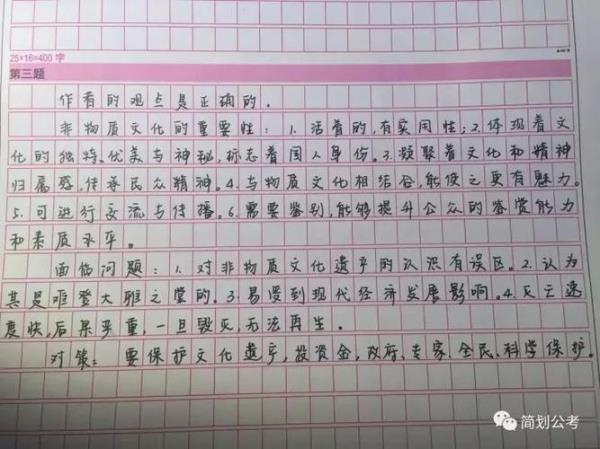 25×16=400 字
第三题
作者的观点是正确的。
非物质文化的重要性：1.活着的,有实用性;2.体现着文
化的独特、优美与神秘,标志着国人身份。3.凝聚着文化和精神
归属感,传承民众精神。4.与物质文化相结合,能使之更有魅力。
5.可进行交流与传播。6.需要鉴别,能够提升公众的鉴赏能力
和素质水平。
面临问题：1.对非物质文化遗产的认识有误区。2.认为
其是难登大雅之堂的。3.易受到现代经济发展影响。4.灭亡速
度快,后果严重,一旦毁灭,无法再生。
对策：要保护文化遗产,投资金,政府、专家、全民、科学保护。
简划公考